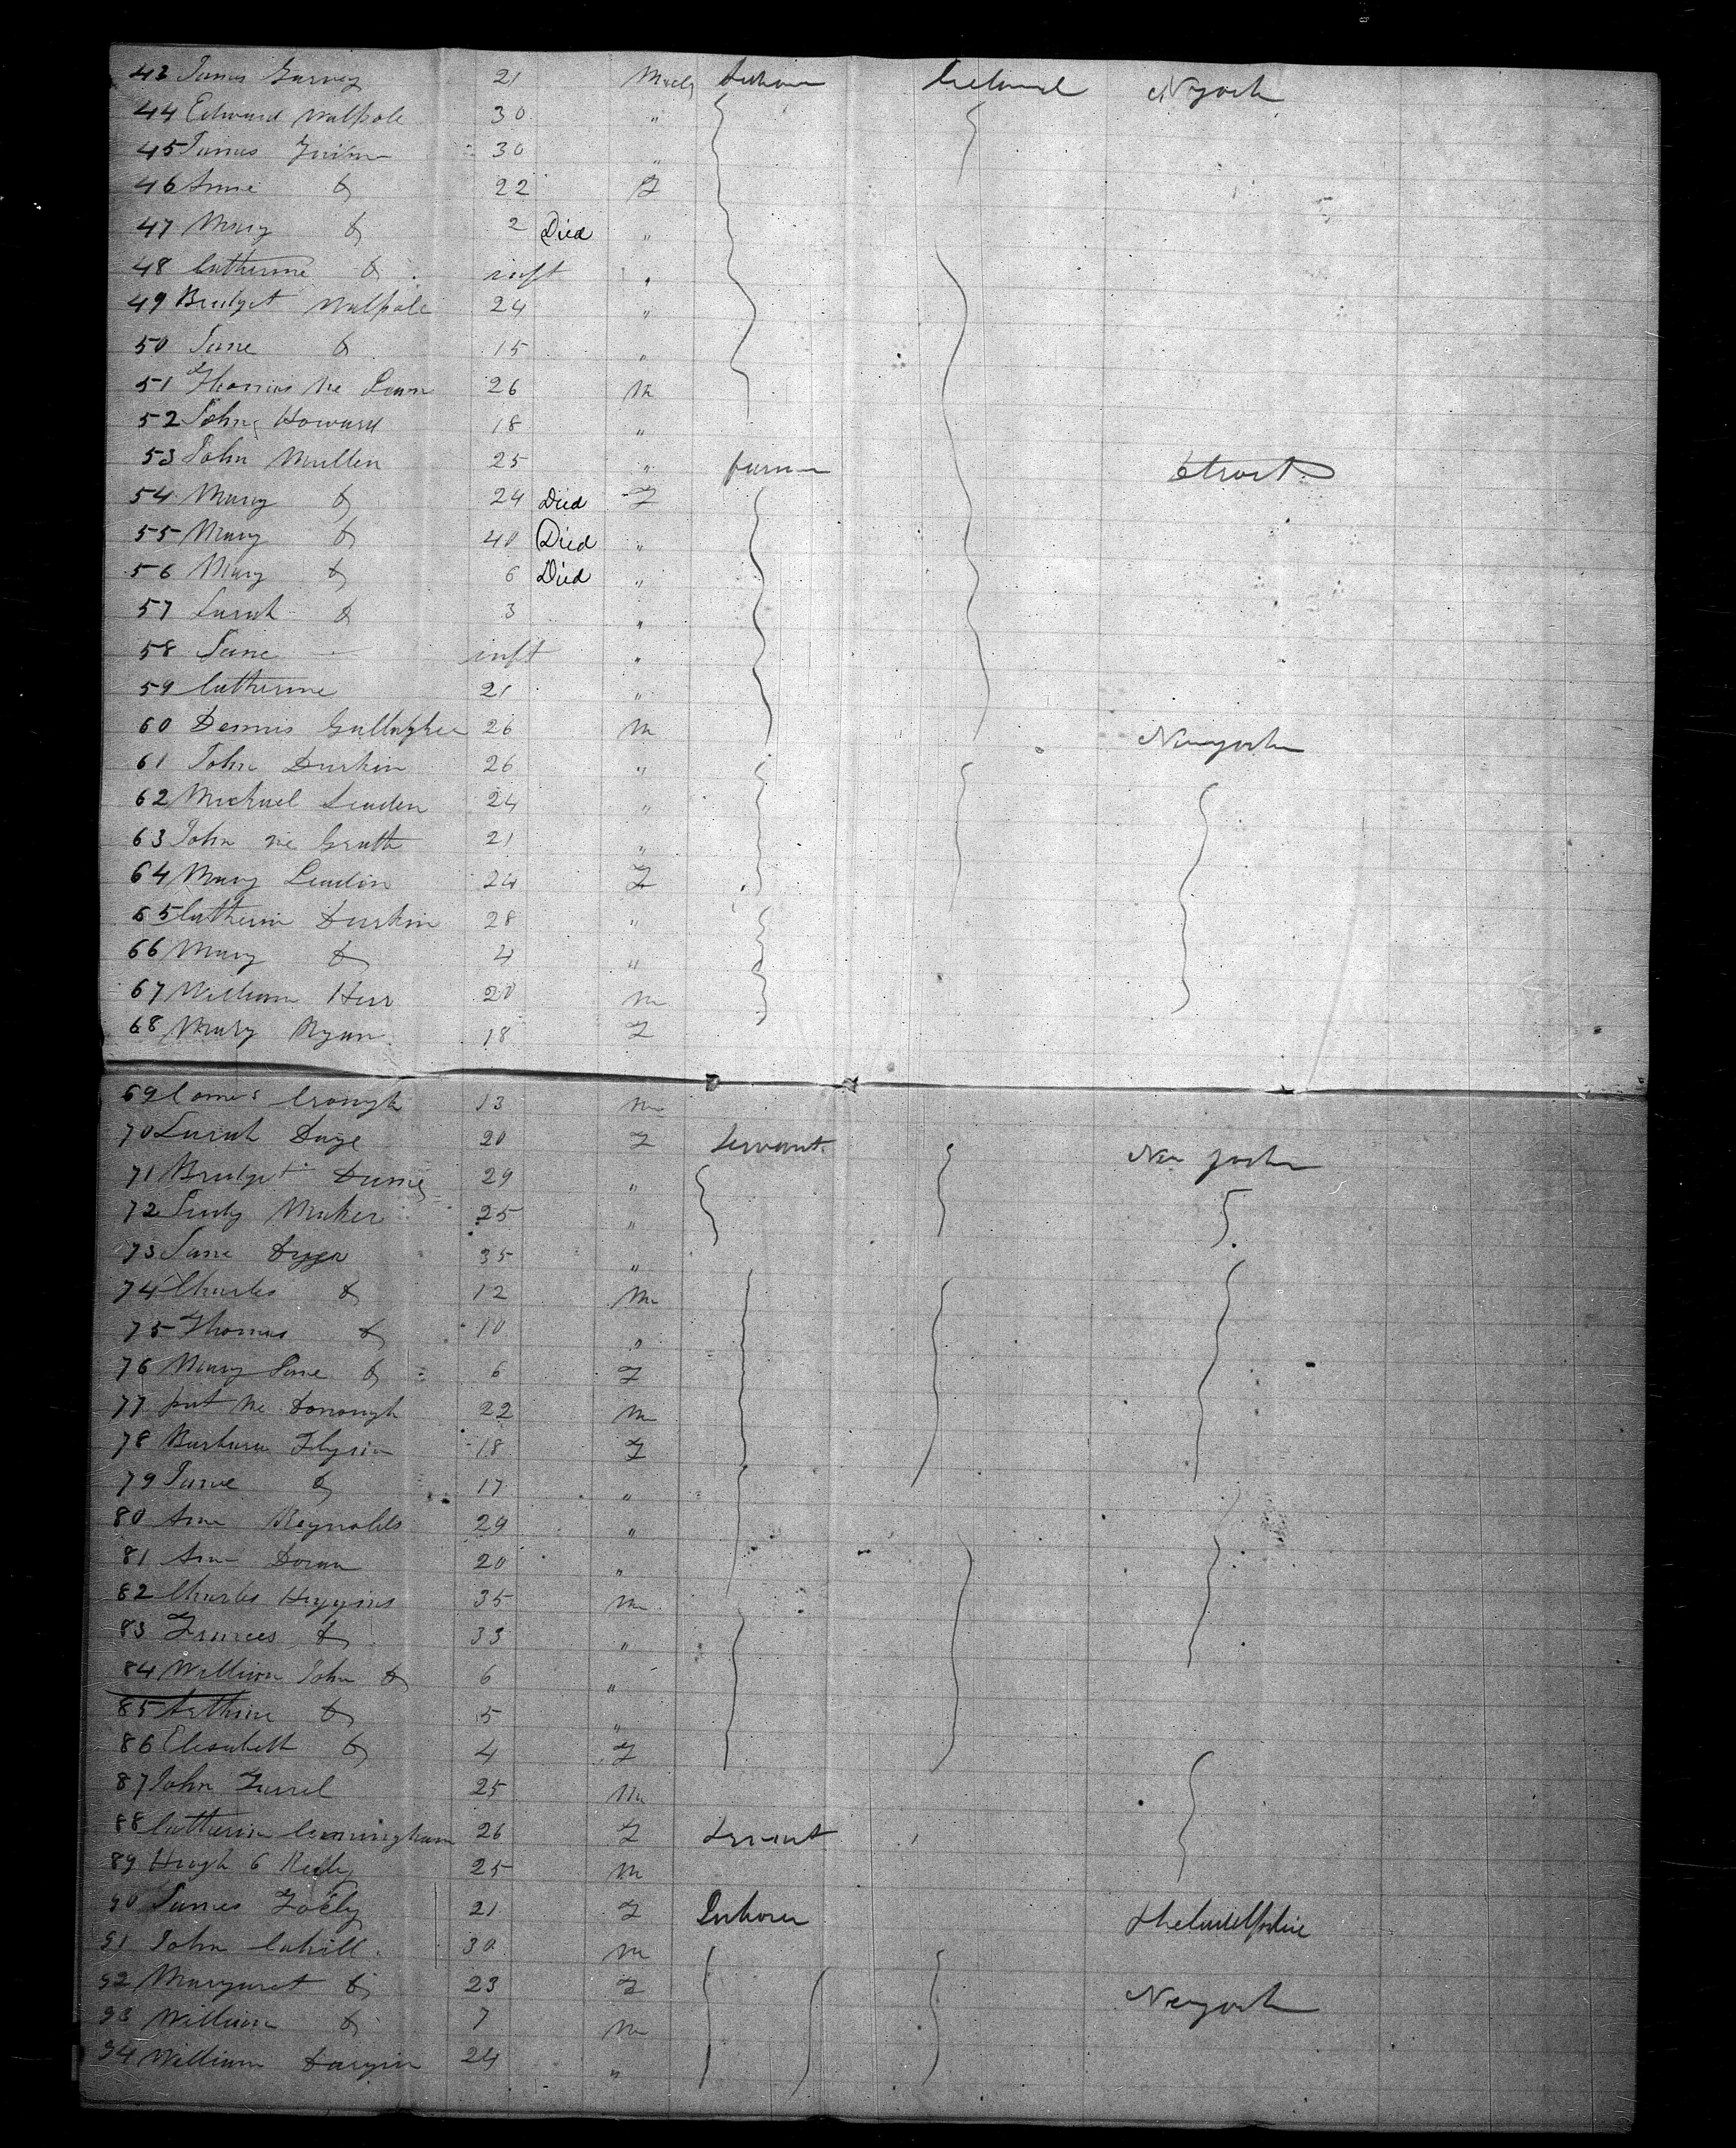 43 James Garvey 21 Male Ireland N york
44 Edward Walpole 30 "
45 James 30 "
46 Anne Do 22 F
47 Mary Do 2 Died "
48 Catherine Do inft "
49 Bridget Walpole 24 "
50 Jane Do 15 "
51 Thomas Mc 26 M
52 John Howard 18 "
53 John Mullen 25 "
54 Mary Do 24 Died F
55 Mary Do 40 Died "
56 Mary Do 6 Died "
57 Sarah Do 3 "
58 Jane inft "
59 Catherine 21 "
60 Dennis Gallagher 26 M Newyork
61 John Durkin 26 "
62 Michael Leaden 24 "
63 John Mc Grath 21 "
64 Mary 24 F
65 Catherin Durkin 28 "
66 Mary Do 4 "
67 William 20 M
68 Mary Ryan 18 F
69 13 M
70 Sarah Daye 20 F Servant New york
71 Bridget 29 "
72 Maher 25 "
73 Jane 35 "
74 Charles Do 12 M
75 Thomas Do 10 "
76 Mary Jane Do 6 F
77 pat Mc Donough 22 M
78 Barbara 18 F
79 Do 17 "
80 Ann Reynolds 29 "
81 Ann Doran 20 "
82 Charles Higgins 35 M
83 Frances Do 33 "
84 William John Do 6 "
85 Do 5 "
86 Elesabeth Do 4 F
87 John 25 M
88 Catherin Cunningham 26 F Servant
89 Hugh O Reilly 25 M
90 James 21 F
91 John Cahill 30 M
92 Margaret Do 23 F Newyork
93 William Do 7 M
94 William 24 "